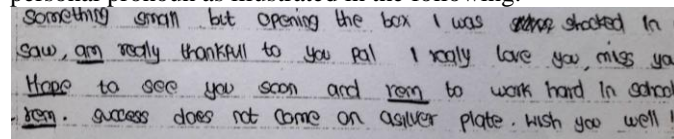 personal pronoun as illustrated in the following:
Something small but opening the box I was shocked In
saw, am really thankfull to you pal I realy love you, miss ya
Hope to see you soon and rem to work hard In school
rem. success does not come on asilver plate. Wish you well